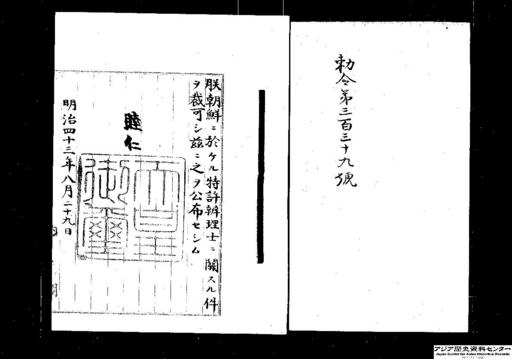 勅令第三百三十九號
朕朝鮮ニ於ケル特許辨理士ニ關スル件
ヲ裁可シ茲ニ之ヲ公布セシム
睦仁
天皇御璽
明治四十三年八月二十九日
アジア歴史資料センター
Japan Center for Asian Historical Records